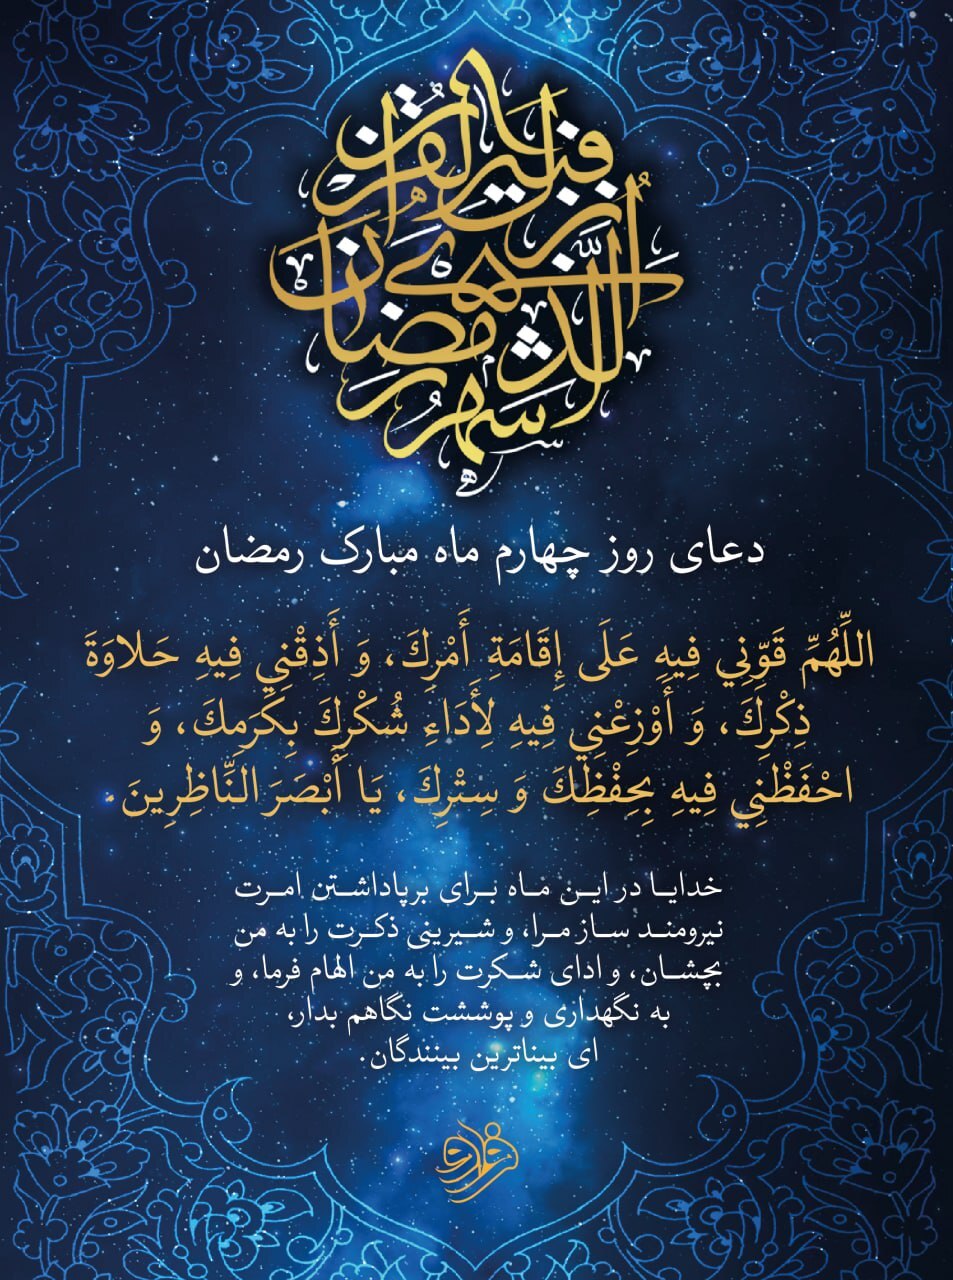 شهر رمضان الذي أنزل فيه القرآن
دعای روز چهارم ماه مبارک رمضان
اللِّهُمِّ قَوِّنِي فِيهِ عَلَى إِقَامَةِ أَمْرِكَ، وَ أَذِقْنِي فِيهِ حَلاوَةَ
ذِكْرِكَ، وَ أَوْزِعْنِي فِيهِ لِأَدَاءِ شُكْرِكَ بِكَرَمِكَ، وَ
احْفَظْنِي فِيهِ بِحِفْظِكَ وَ سِتْرِكَ، يَا أَبْصَرَ النَّاظِرِينَ.
خدایا در این ماه برای برپاداشتن امرت
نیرومند ساز مرا، و شیرینی ذکرت را به من
بچشان، و ادای شکرت را به من الهام فرما، و
به نگهداری و پوششت نگاهم بدار،
ای بیناترین بینندگان.